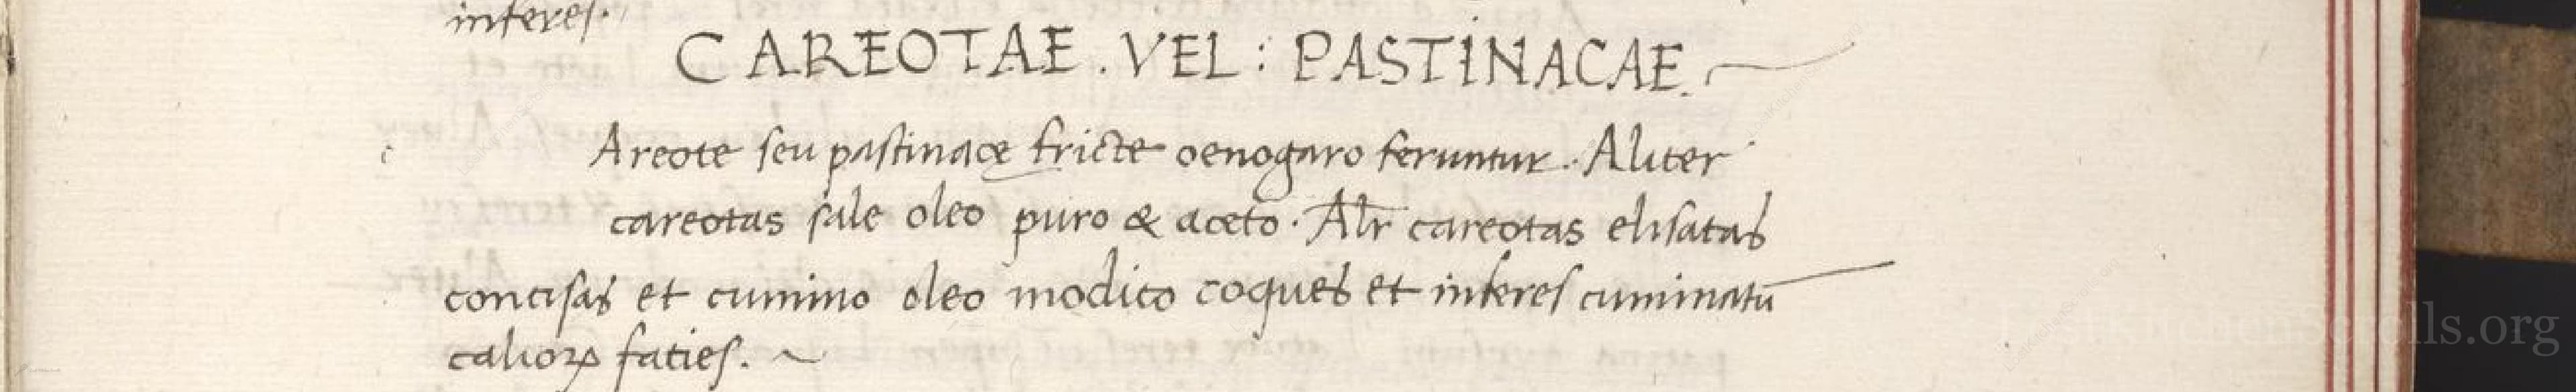 inferes.
CAREOTAE . VEL : PASTINACAE.
c
Areote seu pastinace fricte oenogaro feruntur. Aliter
careotas sale oleo puro & aceto. Alr̄ careotas elisatas
concisas et cumino oleo modico coques et inferes cuminatū
caliorꝝ faties. ~
lls.org